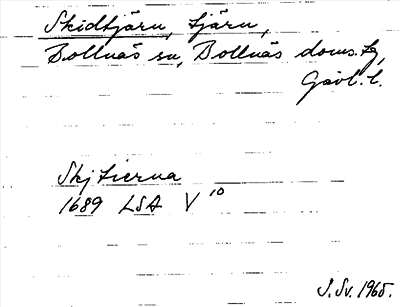 Skidtjärn, tjärn,
Bollnäs sn, Bollnäs doms. tg,
Gävl. l.
Skj tierna
1689 LSA V 10
J. Sv. 1965.